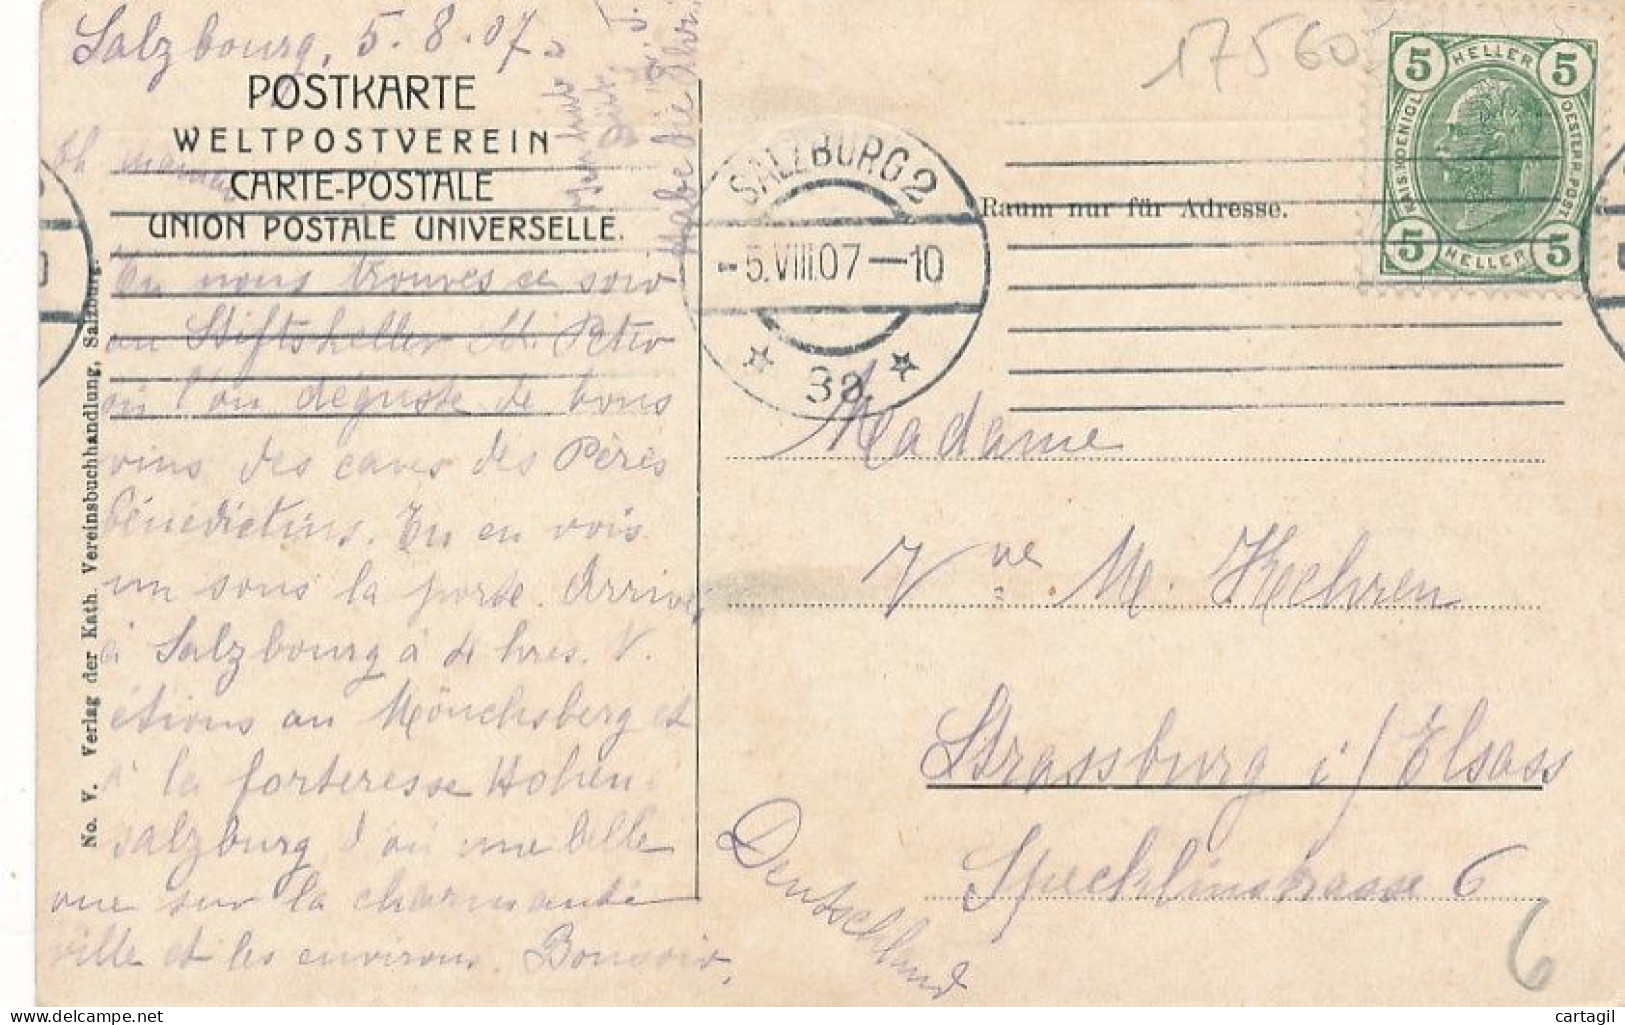 Salzbourg, 5.8.07.
POSTKARTE
WELTPOSTVEREIN
CARTE-POSTALE
UNION POSTALE UNIVERSELLE.
On nous trouves ce soir
au Stiftskeller St. Peter
où l'on déguste de bons
vins des caves des Pères
bénédictins. On en vois
un sous la porte. Arrivés
à Salzbourg à 4 hres. N.
étions au Mönchsberg et
à la forteresse Hohen-
salzburg d'où une belle
vue sur la charmante
ville et les environs. Bonsoir,
Habe die Ehr
No. V. Verlag der Kath. Vereinsbuchhandlung, Salzburg.
17560
SALZBURG 2
-5.VIII.07-10
3a
Raum nur für Adresse.
5 HELLER 5
KAIS. KOENIGL. OESTERR. POST
5 HELLER 5
Madame
Vve M. Kechren
Strassburg i/Elsass
Specklinstrasse 6
Deutschland
6
cartagil